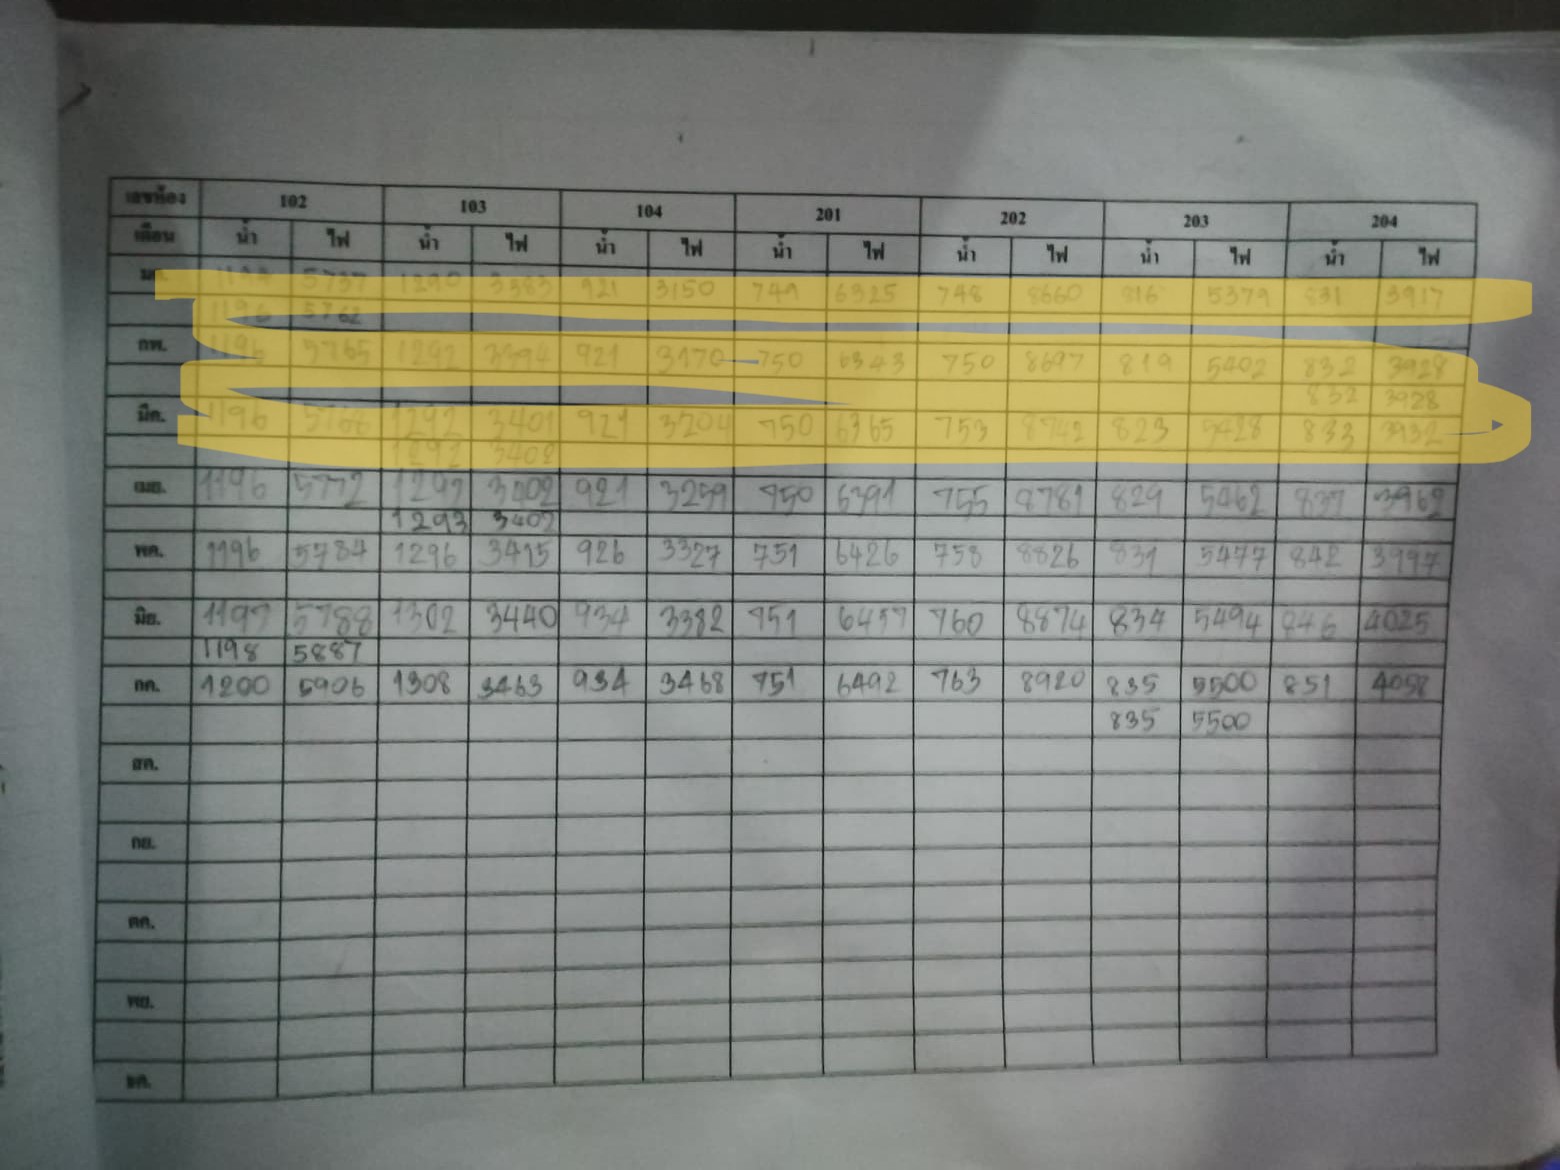 เลขห้อง 102 103 104 201 202 203 204
เดือน น้ำ ไฟ น้ำ ไฟ น้ำ ไฟ น้ำ ไฟ น้ำ ไฟ น้ำ ไฟ น้ำ ไฟ
มค. 5737 1290 3383 921 3150 749 6325 748 8660 816 5379 831 3917
1196 5762
กพ. 1196 5765 1292 3394 921 3170 750 6343 750 8697 819 5402 832 3928
832 3928
มีค. 1196 5768 1292 3401 921 3204 750 6365 753 8742 823 5428 833 3932
1292 3402
เมย. 1196 5772 1292 3402 921 3259 750 6391 755 8781 829 5462 837 3962
1293 3402
พค. 1196 5784 1296 3415 926 3327 751 6426 758 8826 831 5477 842 3997
มิย. 1197 5788 1302 3440 934 3382 751 6457 760 8874 834 5494 846 4025
1198 5887
กค. 1200 5906 1308 3463 934 3468 751 6492 763 8920 835 5500 851 4058
835 5500
สค.
กย.
ตค.
พย.
ธค.